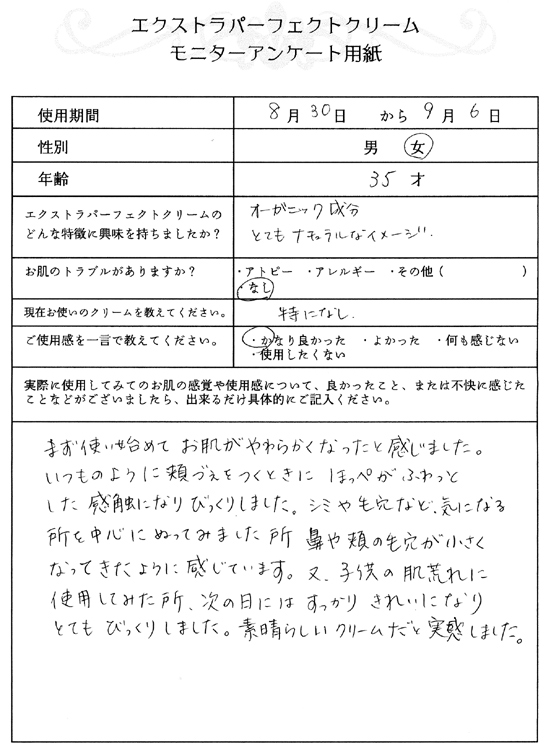 エクストラパーフェクトクリーム
モニターアンケート用紙
使用期間 8月30日 から9月6日
性別 男 女
年齢 35 才
エクストラパーフェクトクリームの
どんな特徴に興味を持ちましたか?
オーガニック成分
とてもナチュラルなイメージ.
お肌のトラブルがありますか?
・アトピー ・アレルギー ・その他( )
・なし
現在お使いのクリームを教えてください。 特になし.
ご使用感を一言で教えてください。
・かなり良かった ・よかった ・何も感じない
・使用したくない
実際に使用してみてのお肌の感覚や使用感について、良かったこと、または不快に感じた
ことなどがございましたら、出来るだけ具体的にご記入ください。
まず使い始めて お肌がやわらかくなったと感じました。
いつものように頬づえをつくときに ほっぺがふわっと
した 感触になりびっくりしました。シミや毛穴など、気になる
所を中心にぬってみました所 鼻や頬の毛穴が小さく
なってきたように感じています。又、子供の肌荒れに
使用してみた所、次の日には すっかり きれいになり
とても びっくりしました。素晴らしいクリームだと実感しました。